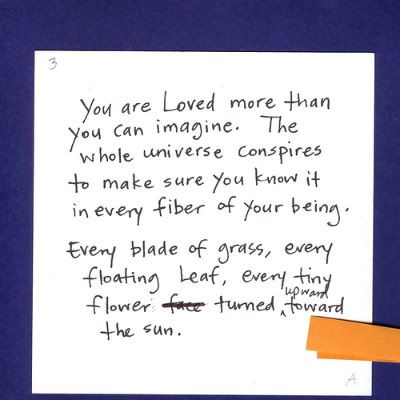 3
You are Loved more than
you can imagine. The
whole universe conspires
to make sure you know it
in every fiber of your being.
Every blade of grass, every
floating Leaf, every tiny
flower face turned, upward toward
the sun.
A